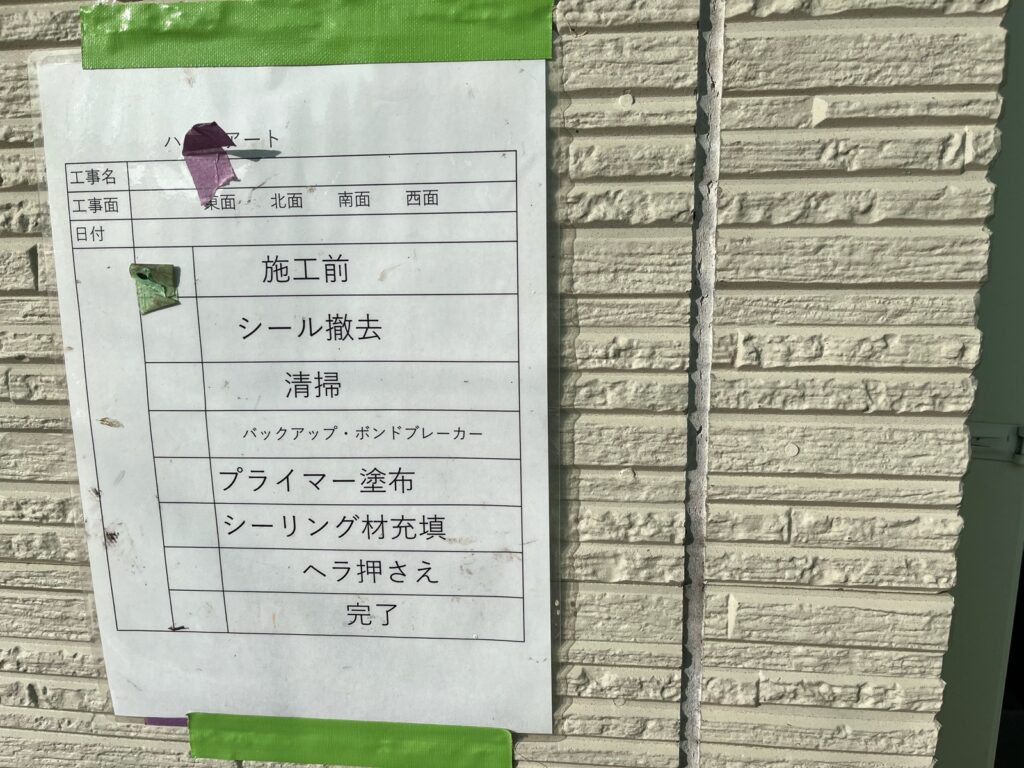 アート
工事名
工事面 東面 北面 南面 西面
日付
施工前
シール撤去
清掃
バックアップ・ボンドブレーカー
プライマー塗布
シーリング材充填
ヘラ押さえ
完了